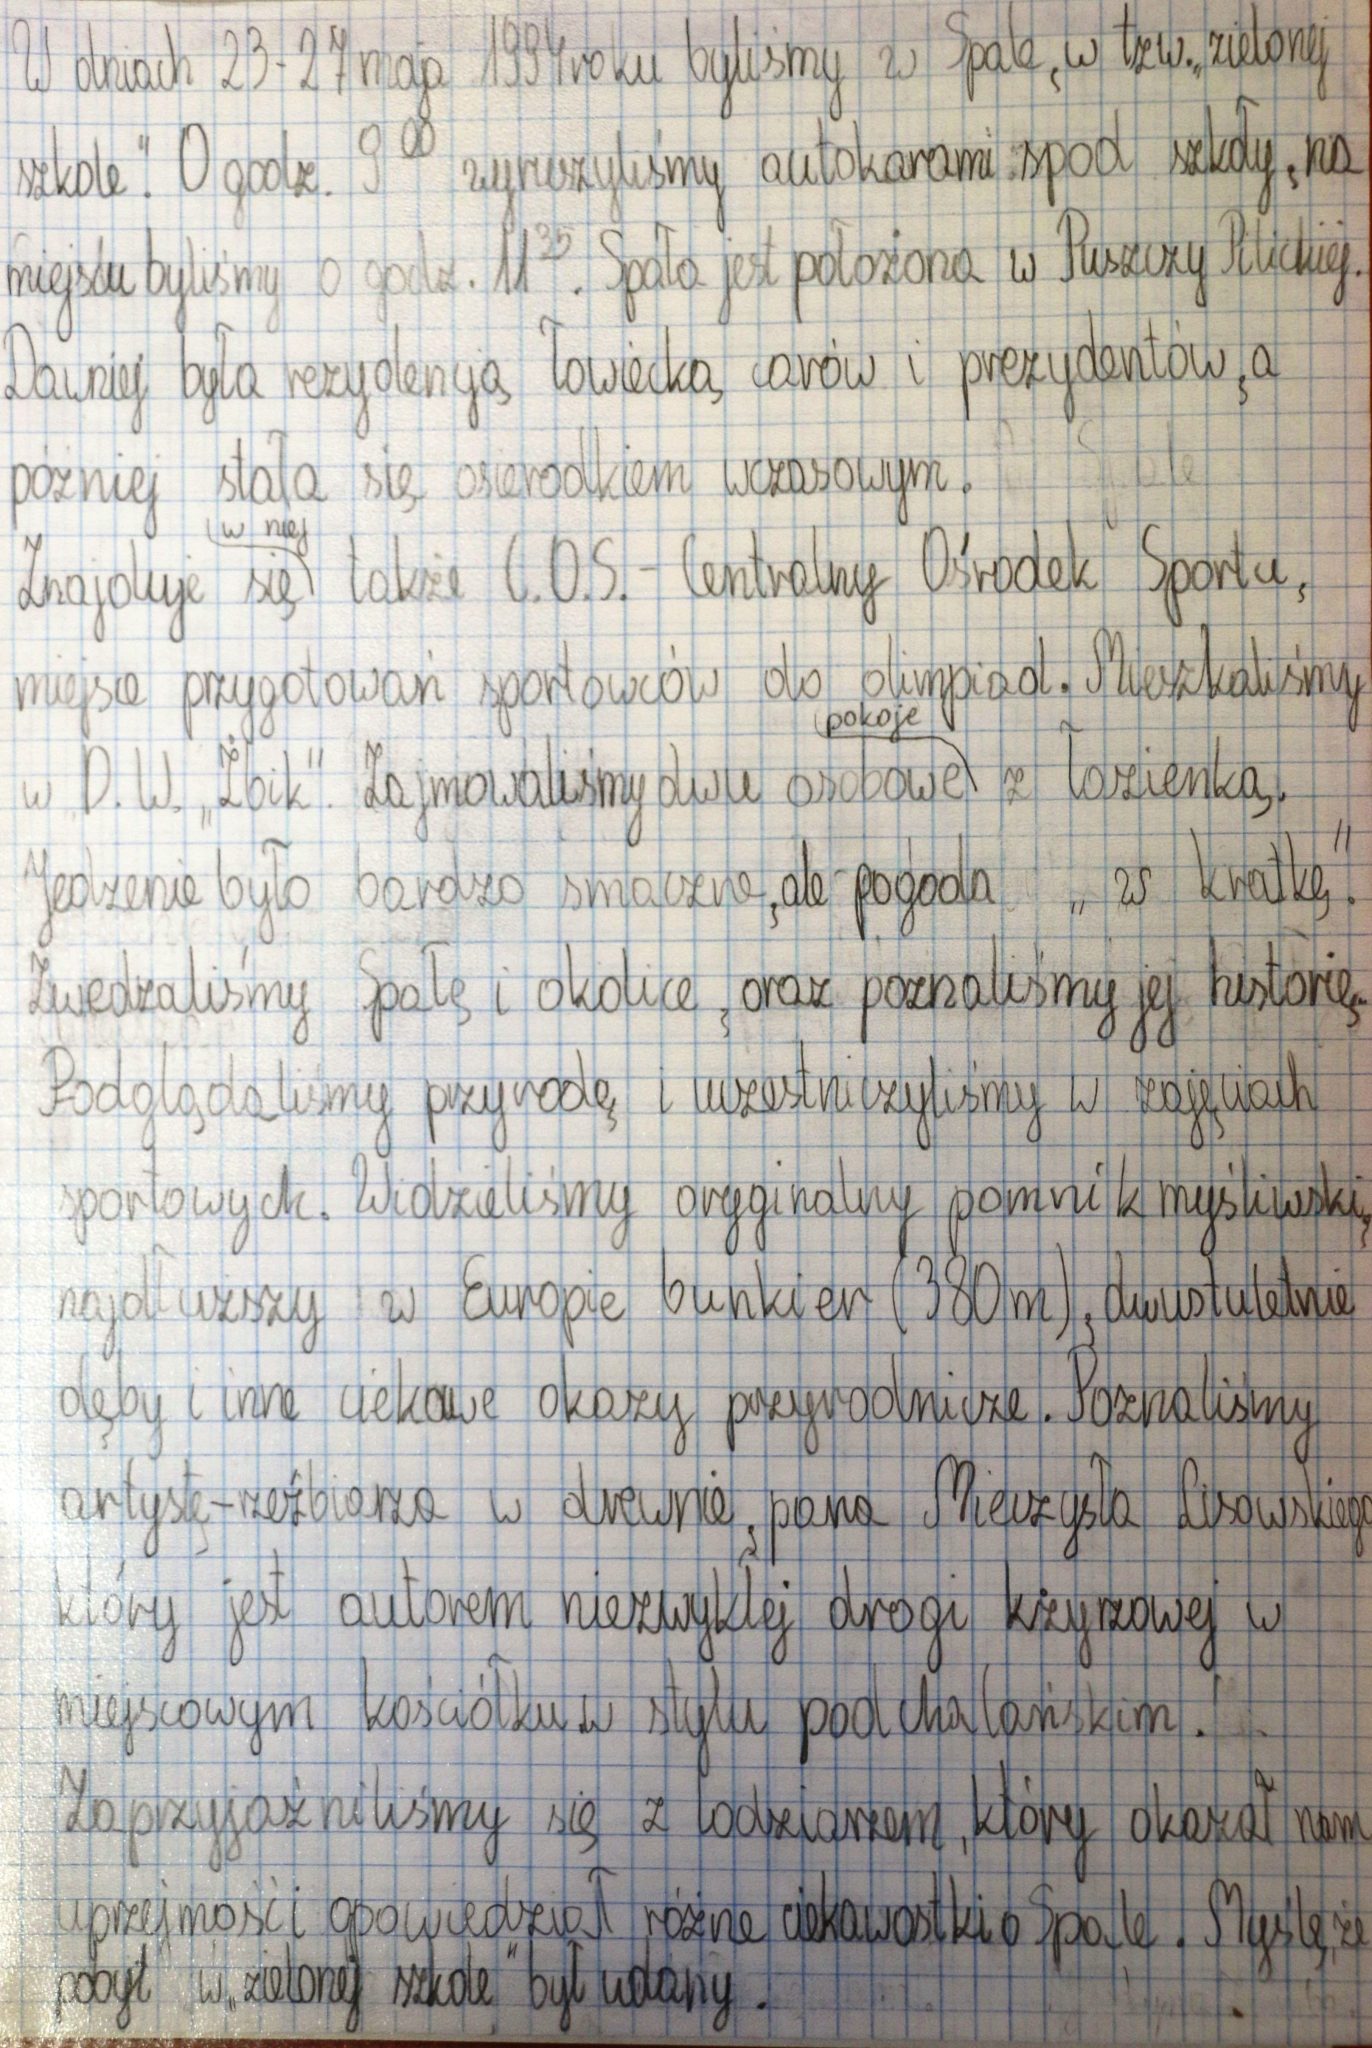 W dniach 23-27 maja 1994 roku byliśmy w Spale, w tzw. „zielonej
szkole". O godz. 9⁰⁰ wyruszyliśmy autokarami spod szkoły, na
miejscu byliśmy o godz. 11³⁵. Spała jest położona w Puszczy Pilickiej.
Dawniej była rezydencją łowiecką carów i prezydentów, a
później stała się osierodkiem wczasowym.
w niej
Znajduje się także C.O.S. - Centralny Ośrodek Sportu,
miejsce przygotowań sportowców do olimpiad. Mieszkaliśmy
pokoje
w D.W. „Żbik". Zajmowaliśmy dwu osobowe z łazienką.
Jedzenie było bardzo smaczne, ale pogoda „w kratkę".
Zwiedzaliśmy Spałę i okolice, oraz poznaliśmy jej historię.
Podglądaliśmy przyrodę i uczestniczyliśmy w zajęciach
sportowych. Widzieliśmy oryginalny pomnik myśliwski,
najdłuższy w Europie bunkier (380m), dwustuletnie
dęby i inne ciekawe okazy przyrodnicze. Poznaliśmy
artystę-rzeźbiarza w drewnie, pana Mieczysła Lisowskiego
który jest autorem niezwykłej drogi krzyrzowej w
miejscowym kościółku w stylu podchalańskim.
Zaprzyjaźniliśmy się z lodziarzem, który okazał nam
uprzejmość i opowiedział różne ciekawostki o Spale. Myślę, że
pobyt w „zielonej szkole" był udany.